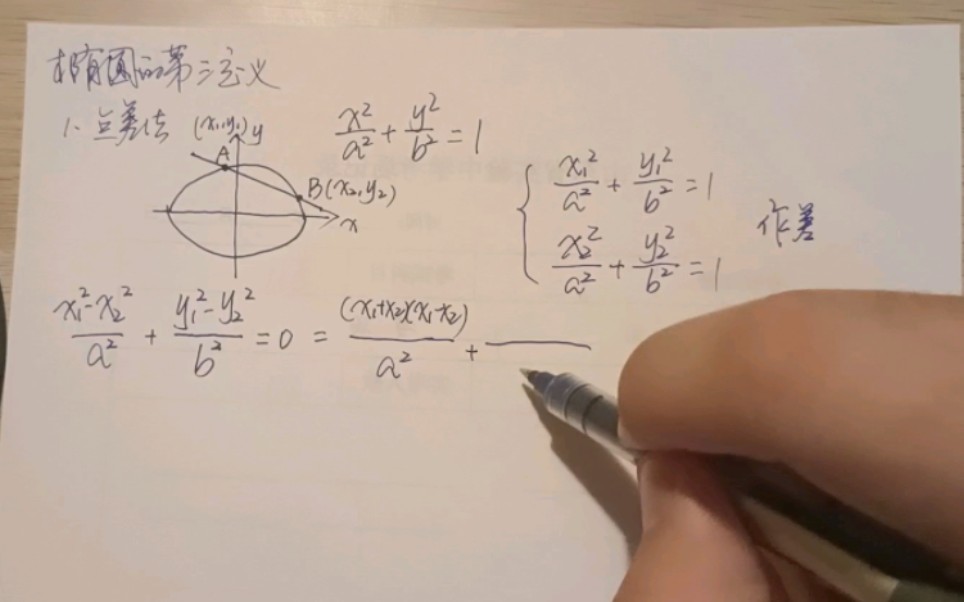 椭圆的第二定义
1. 点差法
(x₁,y₁) y
A
B(x₂,y₂)
x
x²/a² + y²/b² = 1
{ x₁²/a² + y₁²/b² = 1
x₂²/a² + y₂²/b² = 1
作差
(x₁²-x₂²)/a² + (y₁²-y₂²)/b² = 0 = (x₁+x₂)(x₁-x₂)/a² +